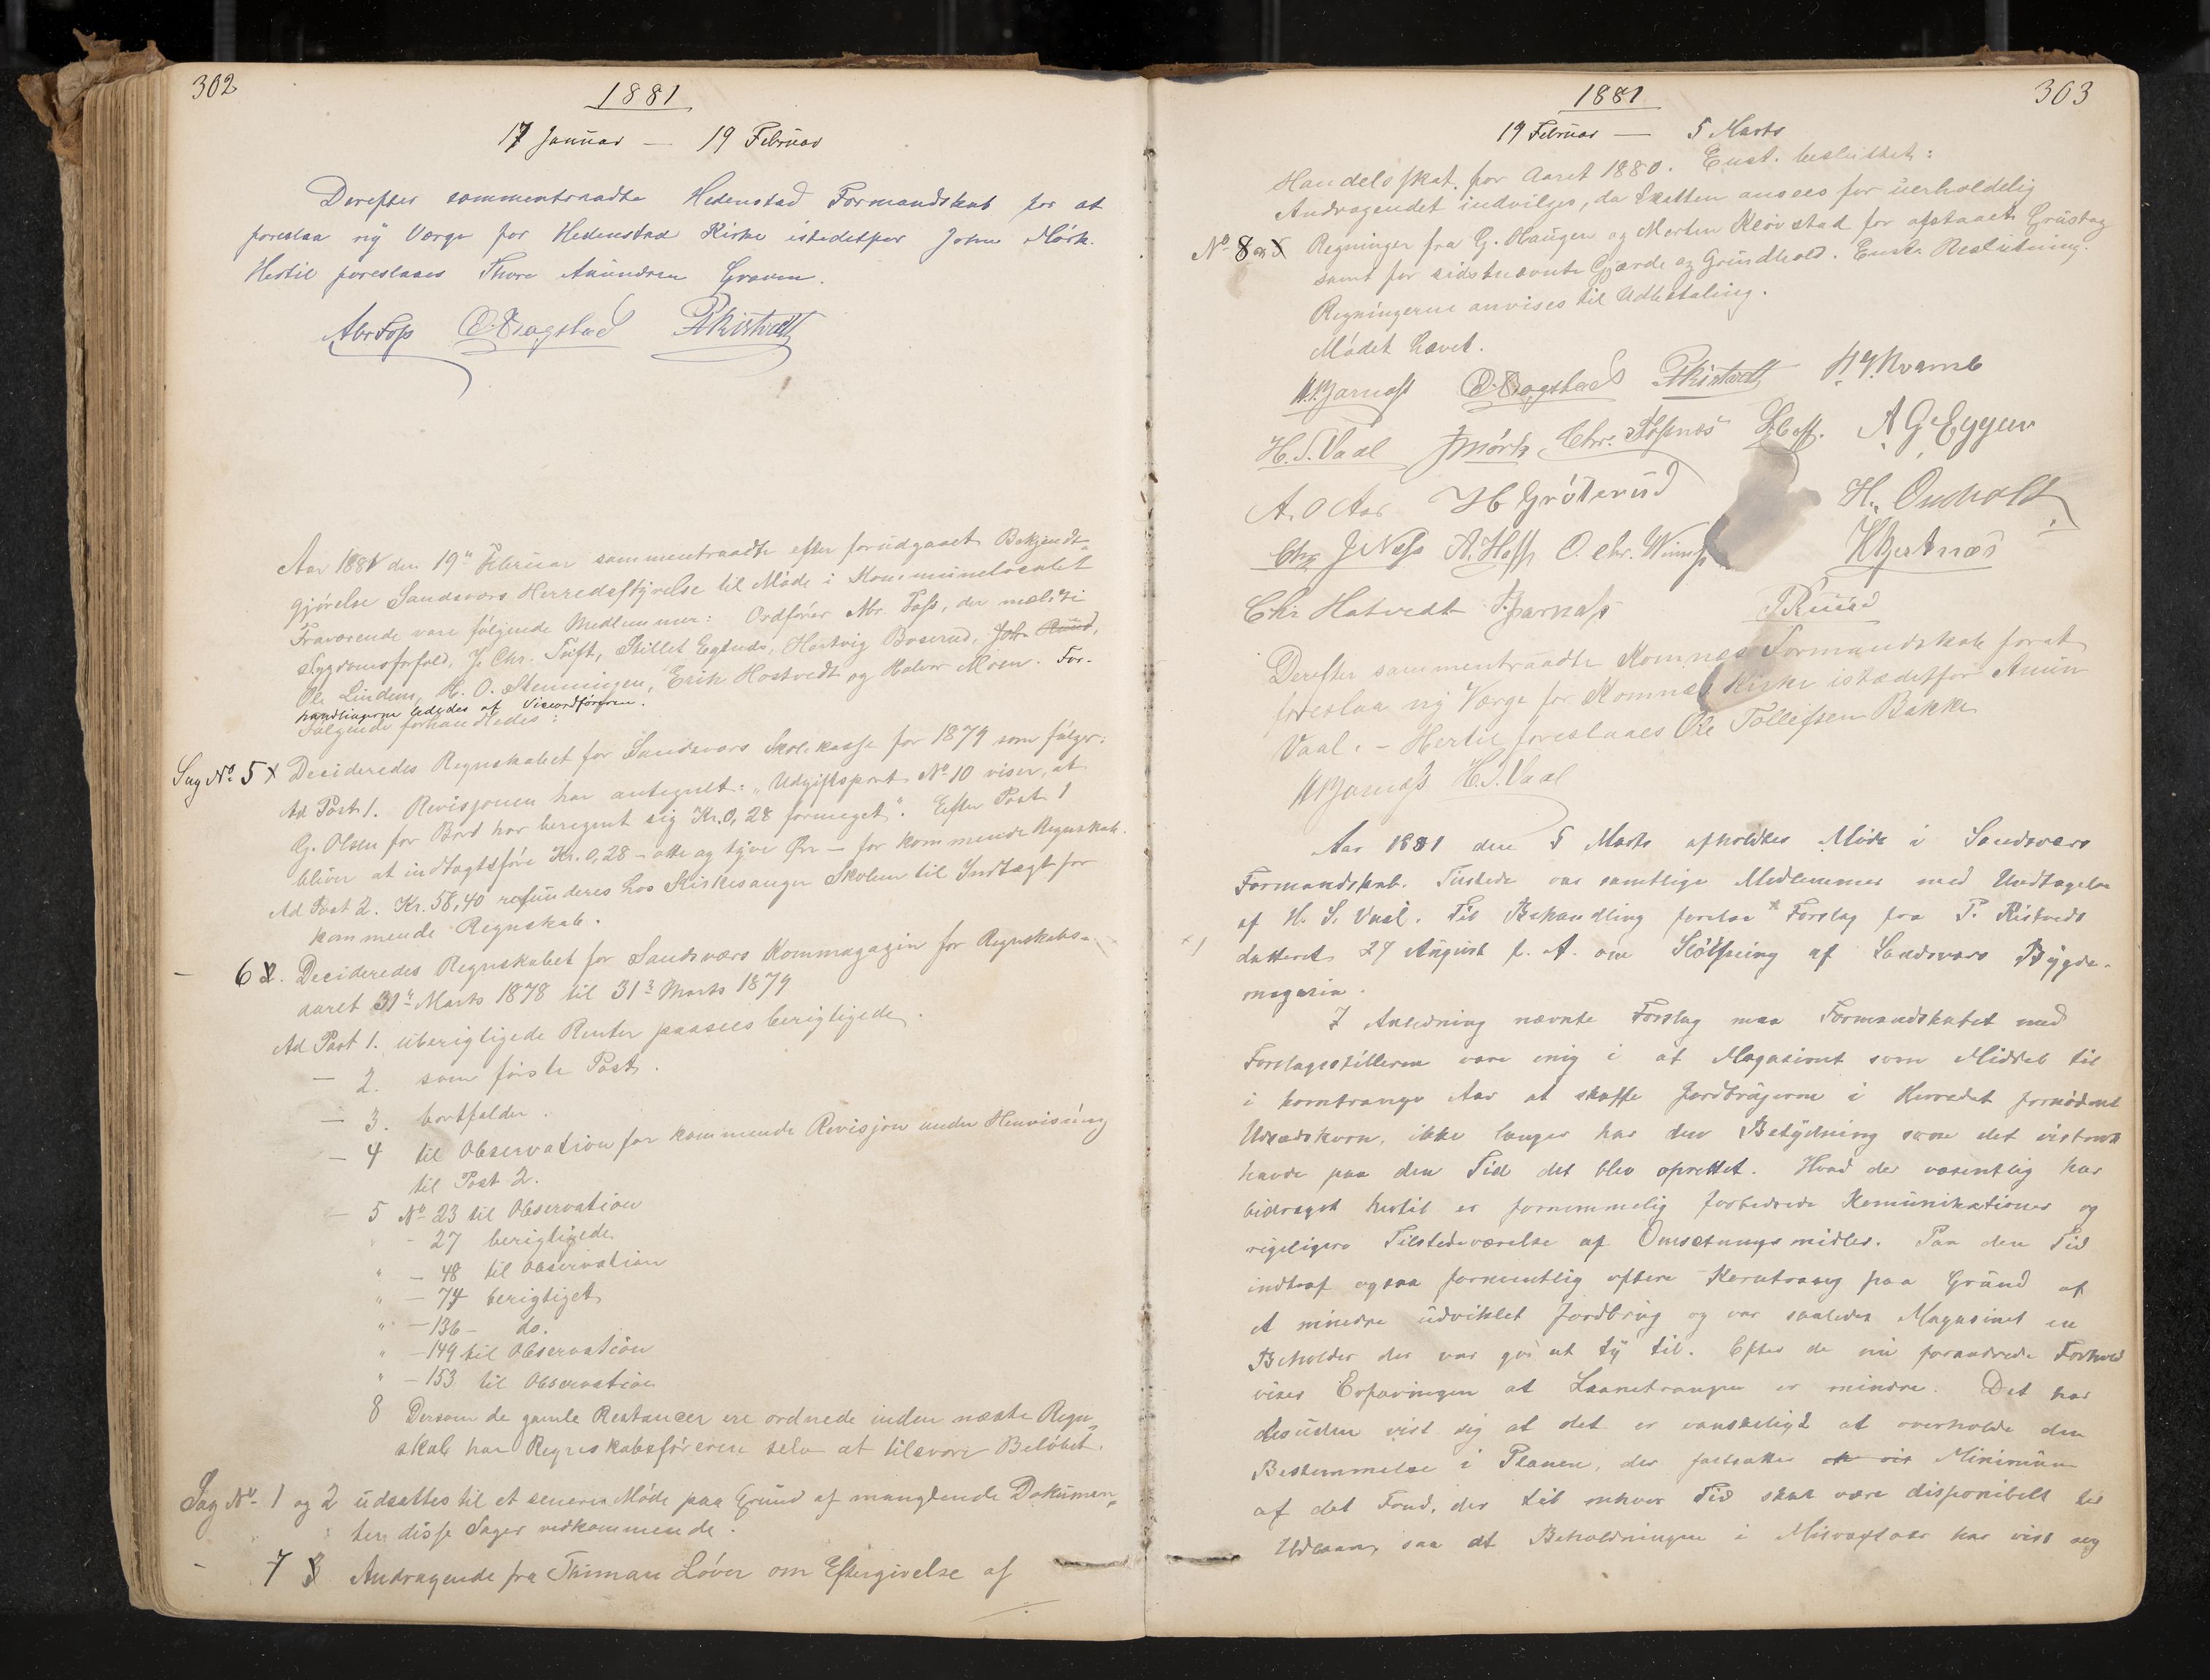 302
1881
17 Januar — 19 Februar
Derefter sammentraadte Hedenstad Formandskab for at
foreslaa ny Værge for Hedenstad Kirke istedetfor John Mörk.
Hertil foreslaaes Thore Amundsen Graven.
Abr Foss
Aar 1881 den 19de Februar sammentraadte efter forudgaaet Bekjendt-
gjörelse Sandsværs Herredsstyrelse til Möde i Kommunelocalet
Fraværende vare fölgende Medlemmer: Ordförer Abr. Foss, der meldte
Sygdomsforfald, J. Chr. Tuft, Hartvig Boserud, John Ruud,
Ole Linden, H. O. Stenningen, Erik Hostvedt og Halvor Moen. For-
handlingerne lededes af Viceordföreren.
Fölgende forhandledes:
Sag No. 5 Decideredes Regnskabet for Sandsværs Skolekasse for 1879 som fölger:
Ad Post 1. Revisjonen har antegnet: „Udgiftspost No 10 viser, at
G. Olsen for Bord har beregnet sig Kr. 0,28 formeget". Efter Post 1
bliver at indtagtsföre Kr. 0,28 – otte og tyve Öre – for kommende Regnskab.
Ad Post 2. Kr. 58,40 refunderes hos Kirkesanger Skolem til Indtægt for
kommende Regnskab.
— 6 2. Decideredes Regnskabet for Sandsværs Kornmagazin for Regnskabs-
aaret 31te Marts 1878 til 31te Marts 1879
Ad Post 1. uberigtigede Renter paasees berigtigede.
— 2. som förste Post.
— 3. bortfalder.
— 4 til Observation for kommende Revisjon under Henvisning
til Post 2.
— 5 No 23 til Observation
" - 27 berigtigede
" — 48 til Observation
" — 74 berigtiget
" — 136 - do.
" — 149 til Observation
" — 153 til Observation
8 Dersom de gamle Restancer ere ordnede inden næste Regn-
skab har Regnskabsföreren selv at tilsvare Belöbet.
Sag No. 1 og 2 udsættes til et senere Möde paa Grund af manglende Dokumen-
ter disse Sager vedkommende.
- 7 3 Andragende fra Thiman Löver om Eftergivelse af
1881
303
19 Februar — 5 Marts
Handelsskat for Aaret 1880. Enst. besluttet:
Andragendet indvilges, da Skatten ansees for uerholdelig
No. 8 Regninger fra G. Haugen og Morten Klövstad for afstaaet Grustag
samt for sidstnævnte Gjærde og Grundhold. Enst. Beslutning:
Regningerne anvises til Udbetaling.
Mödet hævet.
H. S. Vaal JMörk Chr. Fossnes A G Eggen
A. O Aas H Gröterud
Chr JNess A. Hess O. Chr.
Chr Hatvedt
Derefter sammentraadte Komnes Formandskab for at
foreslaa ny Værge for Komnes Kirke istædetfor Amun
Vaal. – Hertil foreslaaes Ole Tollefsen Bakke
H. S. Vaal
Aar 1881 den 5 Marts afholdtes Möde i Sandsværs
Formandskab. Tilstede var samtlige Medlemmer med Undtagelse
af H. S. Vaal. Til Behandling forelaa x Forslag fra P. Kistvedt
x) datteret 27 August f. A. om Slöifning af Sandsværs Bygde-
magasin.
I Anledning nævnte Forslag maa Formandskabet med
Forslagsstilleren være enig i at Magasinet som Middel til
i korntrange Aar at skaffe Jordbrugerne i Herredet fornödent
Udsædskorn, ikke længer har den Betydning som det vistnok
havde paa den Tid det blev oprettet. Hvad der væsentlig har
bidraget hertil er fornemmelig forbedrede Kommunikationer og
rigeligere Tilstedeværelse af Omsetningsmidler. Paa den Tid
indtraf ogsaa fornemlig oftere Korntrang paa Grund af
et mindre udviklet Jordbrug og var saaledes Magasinet en
Beholder der var god at ty til. Efter de nu forandrede Forhold
viser Erfaringen at Laanetrangen er mindre. Det har
desuden vist sig at det er vanskeligt at overholde den
Bestemmelse i Planen, der fastsætter et vis Minimum
af det Fond, der til enhver Tid skal være disponibelt til
Udlaan, saa at Beholdningen i Misvæxtaar har vist sig